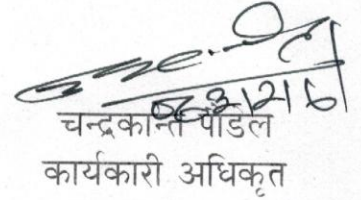 चन्द्रकान्त पौडेल
कार्यकारी अधिकृत